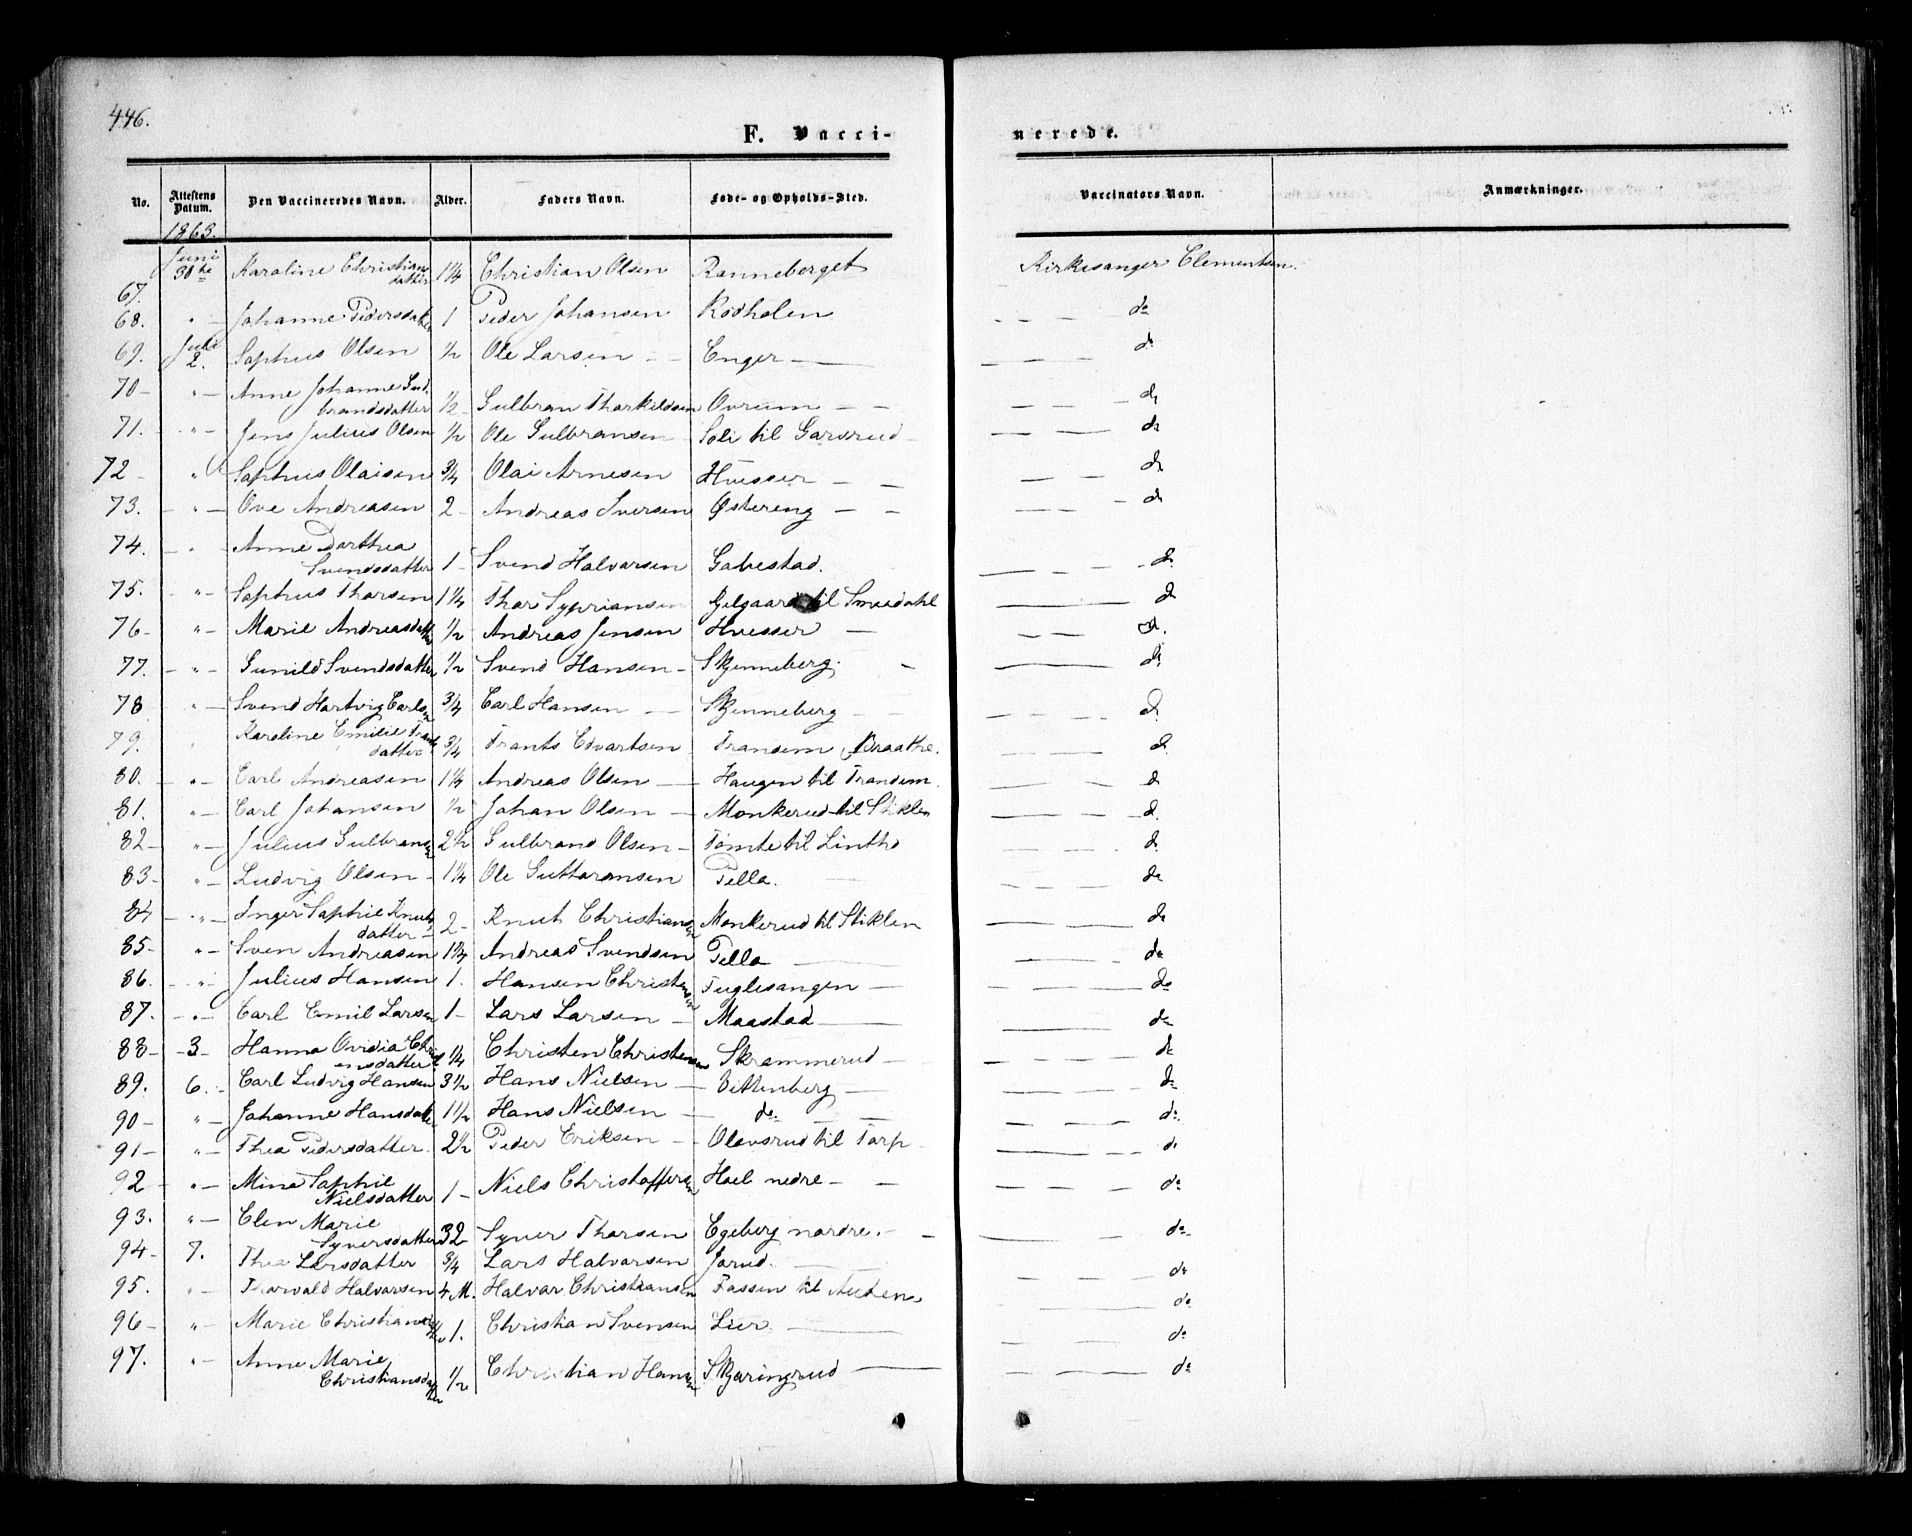 446.
F. Vacci-
nerede.
No. Attestens Datum. Den Vaccineredes Navn. Alder. Faders Navn. Føde- og Opholds-Sted. Vaccinators Navn. Anmærkninger.
1863.
67. Juni 30te Karoline Christiansdatter 1 1/4 Christian Olsen Ranneberget Kirkesanger Clementsen.
68. " — Johanne Pedersdatter 1 Peder Johansen Rødholen — — — do
69. Juli 2. Sophus Olsen 1/2 Ole Larsen — Enger — — — — do
70 — " — Anne Johanne Gud-
brandsdatter 1/2 — Gulbran Thorkildsen Ovrum — — — — — do
71. " — Jens Julius Olsen 1/2 Ole Gulbransen Soli til Garsrud — — — — do
72 — " Sophus Olaisen 3/4 Olai Arnesen Huesser — — — — — do
73. — " — Ove Andreasen 2 — Andreas Iversen Østereng — — — — — do
74. — " Anne Dorthea
Svendsdatter 1 — Svend Halvorsen Gabestad. — — — do
75. " — Sophus Thorsen 1 1/4 Thor Sypriansen til Smedahl — — — do
76 — " — Marie Andreasdatter 1/2 Andreas Jensen Huesser — — — — do.
77. — " — Gunild Svendsdatter 1/2 Svend Hansen — Skjenneberg. — — — do
78 " — Svend Hartvig Carlsen 3/4 Carl Hansen — Skjenneberg — — — — do
79. " Karoline Emilie Frants
datter 3/4 Frants Edvartsen Transem Braathe. — — — do
80. " — Carl Andreasen 1 1/4 Andreas Olsen — Haugen til Transem. — — — do
81. " — Carl Johansen 1/2 Johan Olsen — Monkerud til Stiklen — — — do
82 — " — Julius Gulbransen 2 1/2 Gulbrand Olsen — Tømte til Lintho — — — do
83 — " — Ludvig Olsen — 1 1/4 Ole Guttormsen Pella. — — — do
84 — " — Inger Sophie Knuts
datter — 2 — Knut Christiansen Monkerud til Stiklen — — — do
85 — " — Sven Andreasen 1 3/4 Andreas Svendsen Pella — — — — do
86. — " Julius Hansen 1. Hansen Christensen Fuglesangen — — — — do
87. — " — Carl Emil Larsen 1 — Lars Larsen — Maastad — — — — do
88 — 3 — Hanna Ovidia Christ
ensdatter 1/4 Christen Christensen Skrammerud — — — — do
89. 6. Carl Ludvig Hansen 3 1/2 Hans Nielsen — Vittenberg — — — — do
90 — " — Johanne Hansdatter 1 1/2 Hans Nielsen — do — — — — do
91 — " — Thea Pedersdatter. 2 1/2 Peder Eriksen — Olavsrud til Torp — — — — do
92 — " — Mina Sophie
Nielsdatter 1 — Niels Christoffersen Hoel nedre — — — — — do
93. " — Elen Marie
Syversdatter 32 — Syver Thorsen Egeberg nordre. — — — do
94 — 7. Thea Larsdatter 3/4 Lars Halvorsen Jorud. — — — do
95. " — Thorvald Halvorsen 4 M. Halvor Christiansen Fossen til Auden. — — — do
96 — " — Marie Christiansdatter 1. Christian Svensen Lier — — — — do
97. " — Anne Marie
Christiansdatter 1/2 Christian Hansen Skjæringrud — — — — do